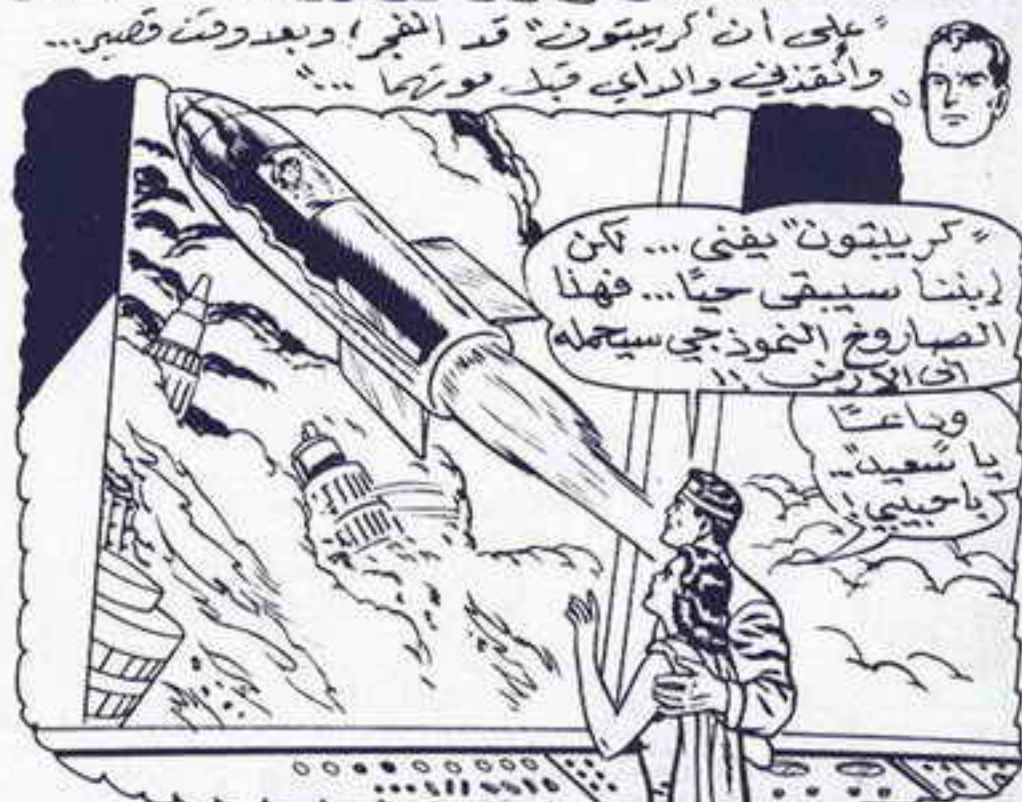 "على أن "كريبتون" قد انفجر! وبعد وقت قصير...
وأنقذني والداي قبل موتهما ..."
"كريبتون" يفنى ... لكن
إبننا سيبقى حيًا... فهذا
الصاروخ النموذجي سيحمله
الى الأرض !!
وداعــًا
يا "سعيد"..
يا حبيبي!